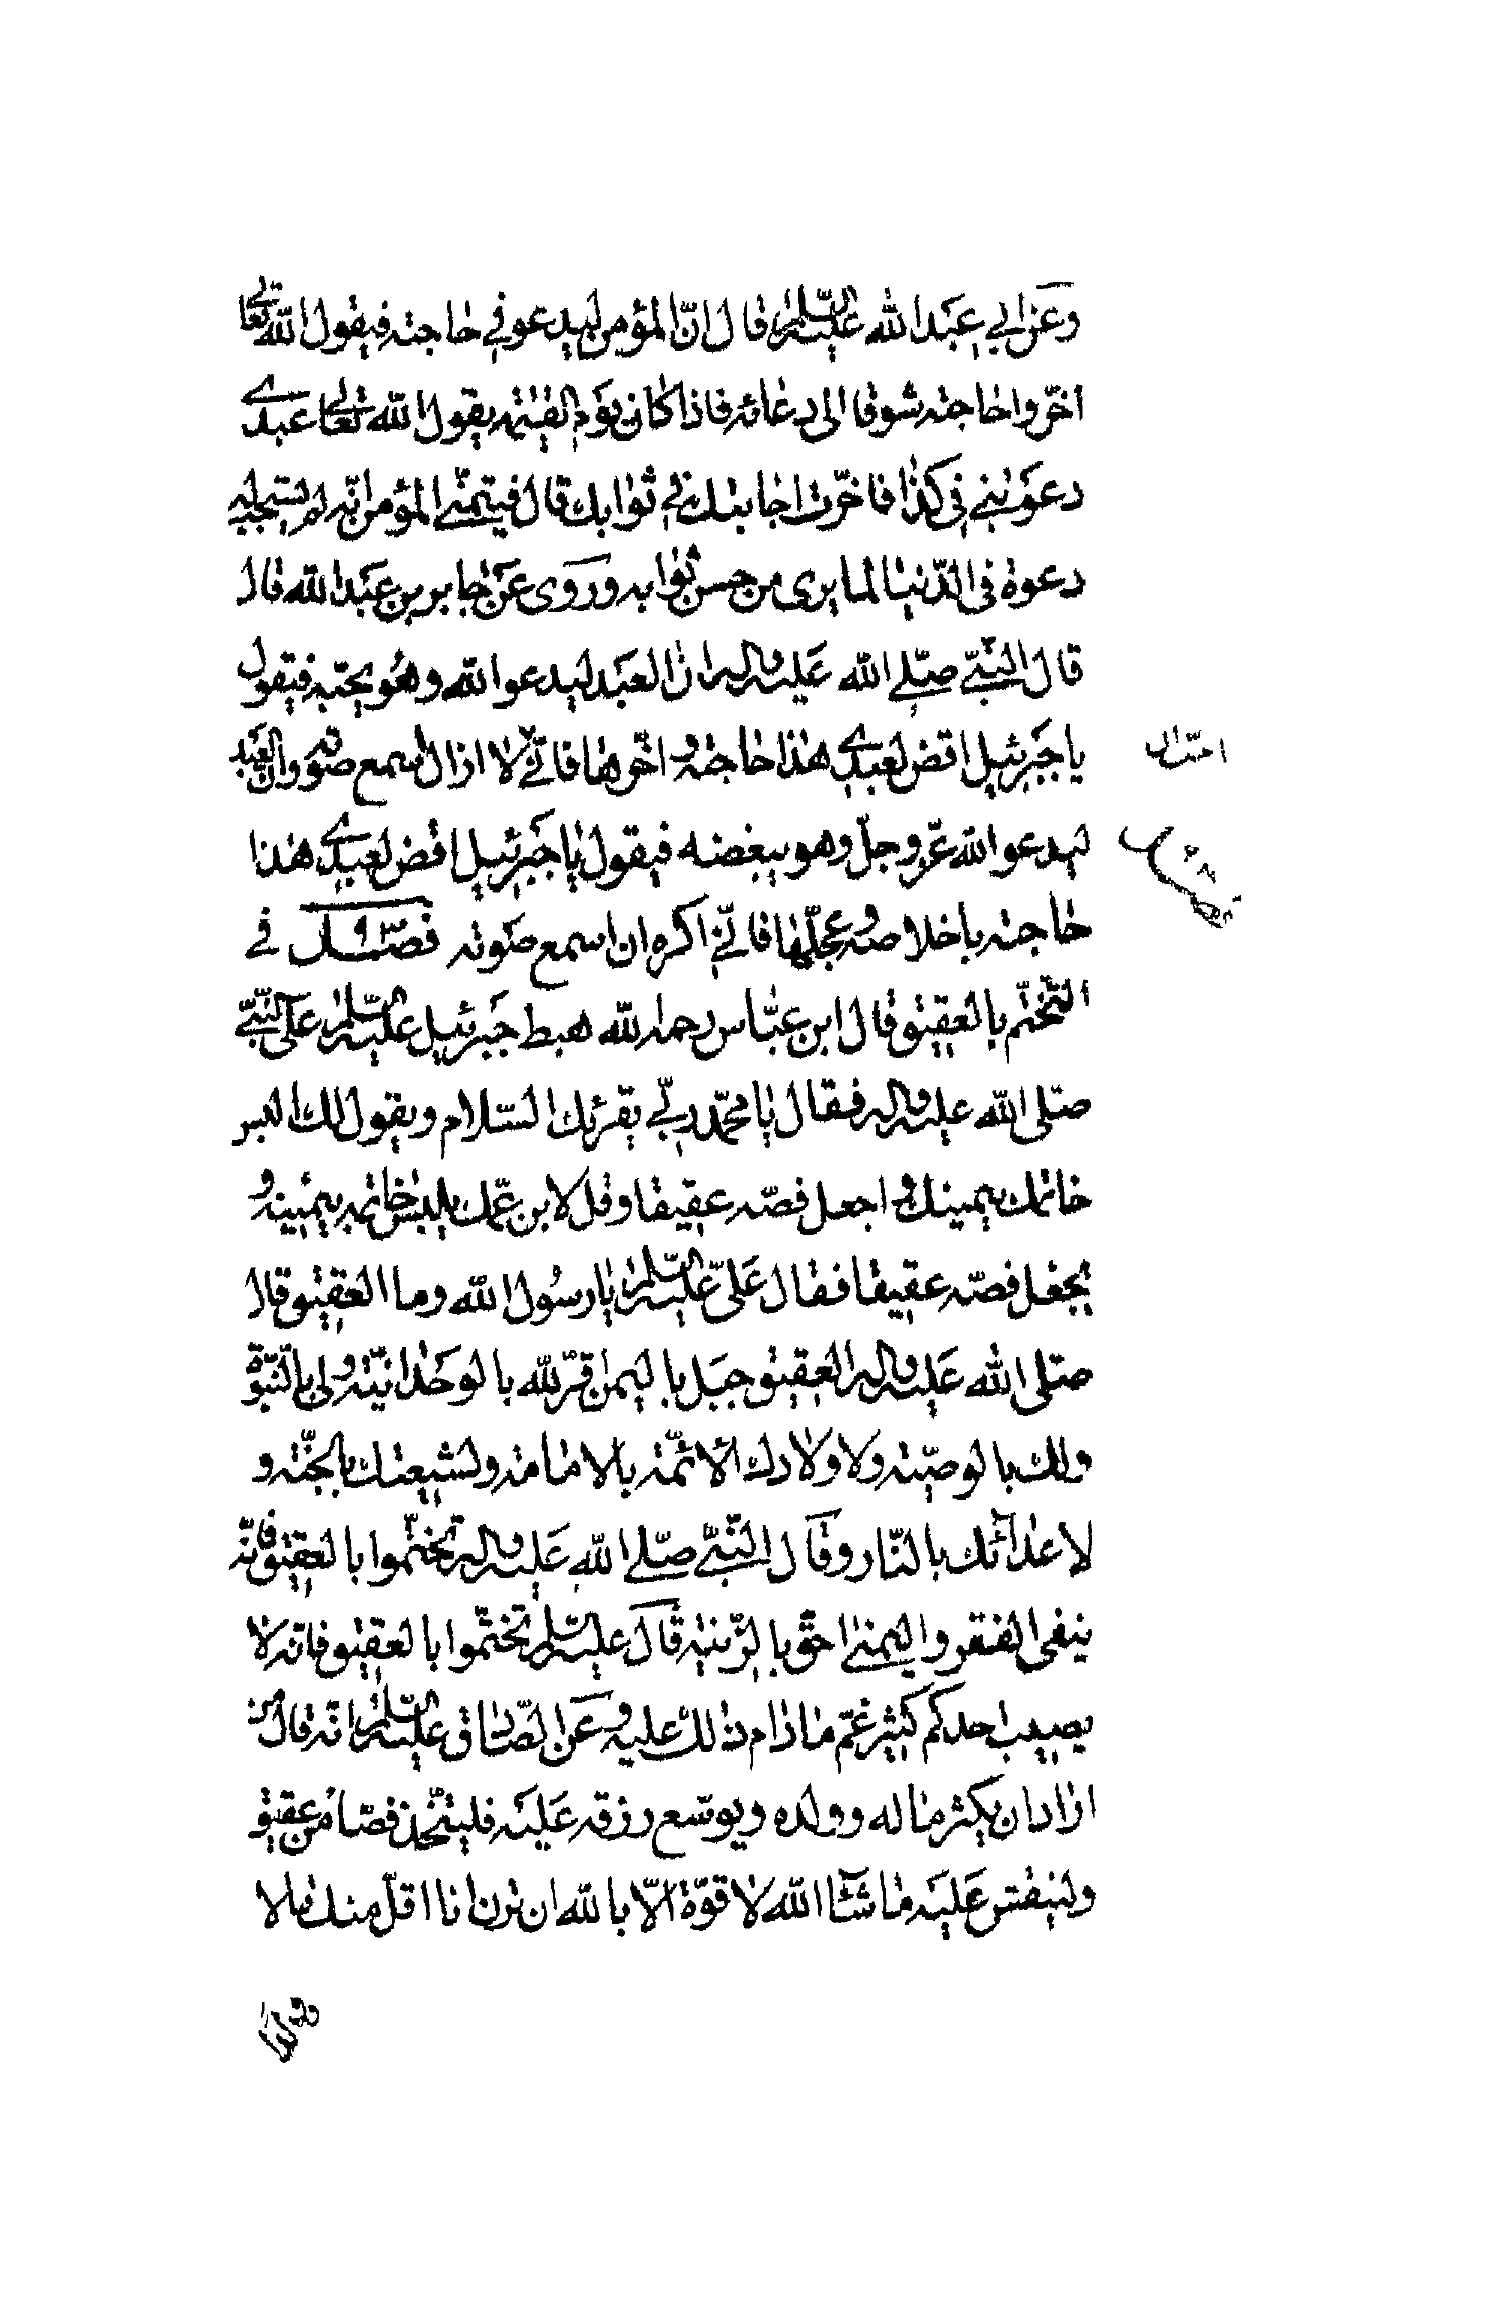 وعن ابي عبد الله عليه السلم قال ان المؤمن ليدعو في حاجته فيقول الله تعالى
اخروا حاجته شوقا الى دعائه فاذا كان يوم القيمه يقول الله تعالى عبدي
دعوتني في كذا فاخرت اجابتك في ثوابك قال فيتمنى المؤمن انه لم يستجب له
دعوة في الدنيا لما يرى من حسن ثوابه وروى عن جابر بن عبد الله قال
قال النبي صلى الله عليه واله ان العبد ليدعو الله وهو يحبه فيقول
يا جبرئيل اقض لعبدي هذا حاجته واخرها فاني لا ازال اسمع صوته وان العبد
ليدعو الله عز وجل وهو يبغضه فيقول يا جبرئيل اقض لعبدي هذا
حاجته باخلاصه وعجلها فاني اكره ان اسمع صوته فصل في
التختم بالعقيق قال ابن عباس رحمه الله هبط جبرئيل عليه السلم على النبي
صلى الله عليه واله فقال يا محمد ربي يقرئك السلام ويقول لك البس
خاتمك بيمينك واجعل فصه عقيقا وقل لابن عمك يلبس خاتمه بيمينه و
يجعل فصه عقيقا فقال علي عليه السلم يا رسول الله وما العقيق قال
صلى الله عليه واله العقيق جبل باليمن اقر لله بالوحدانية ولي بالنبوة
ولك بالوصية ولاولادك الائمة بالامامة ولشيعتك بالجنة و
لاعدائك بالنار وقال النبي صلى الله عليه واله تختموا بالعقيق فانه
ينفى الفقر واليمنى احق بالزينة قال عليه السلم تختموا بالعقيق فانه لا
يصيب احدكم كثير غم مادام ذلك عليه وعن الصادق عليه السلم انه قال من
اراد ان يكثر ماله وولده ويوسع رزقه عليه فليتخذ فصا من عقيق
ولينقش عليه ما شاء الله لا قوة الا بالله ان ترن انا اقل منك مالا